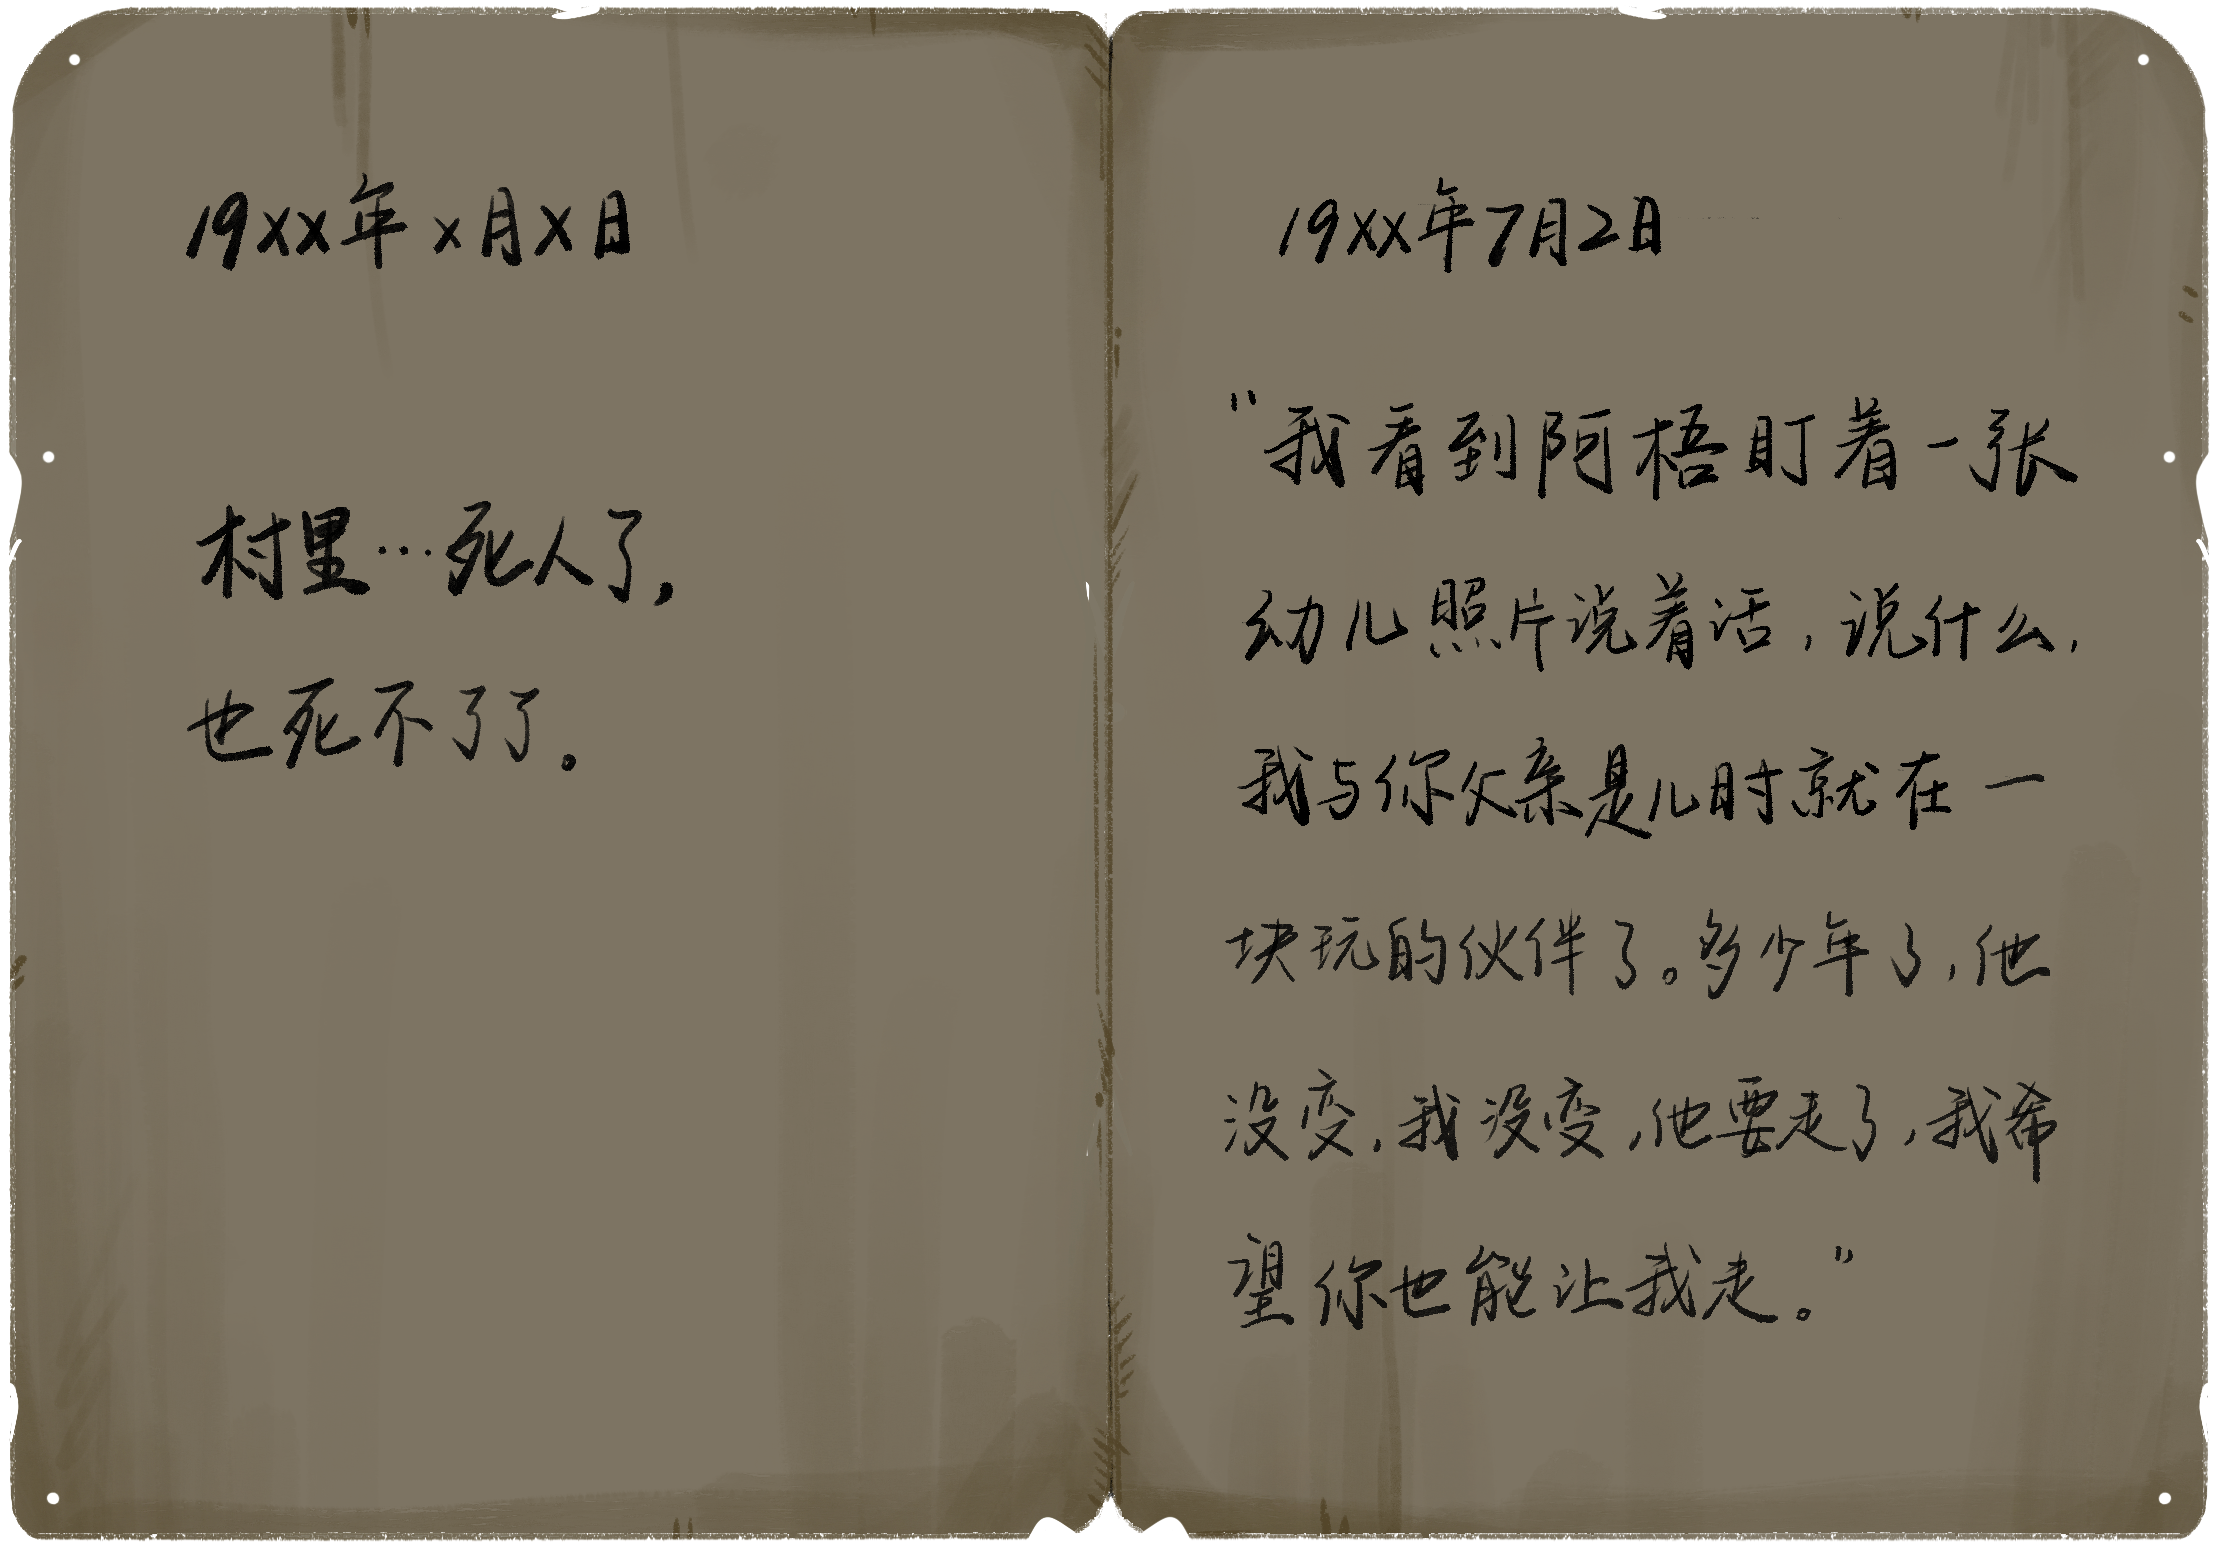 19XX年X月X日
村里…死人了,
也死不了了。
19XX年7月2日
"我看到阿梧盯着一张
幼儿照片说着话,说什么,
我与你父亲是儿时就在一
块玩的伙伴了。多少年了,他
没变,我没变,他要走了,我希
望你也能让我走。"